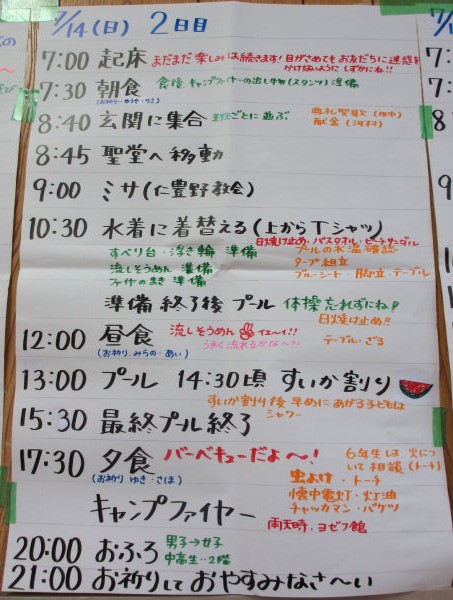 7/14(日) 2日目
7:00 起床 まだまだ楽しみは続きます! 目がさめてもお友だちに迷惑を
かけないようにしずかにね!!
7:30 朝食 食後、キャンプファイヤーの出し物(スタンツ)準備
(お祈り・ゆうき・りこ)
8:40 玄関に集合 班ごとに並ぶ 典礼聖歌(田中)
献金(河村)
8:45 聖堂へ移動
9:00 ミサ(仁豊野教会)
10:30 水着に着替える(上からTシャツ)
日焼け止め・バスタオル・ビーチサンダル
すべり台・浮き輪 準備 プールの水温確認
流しそうめん 準備 タープ組立
準備 ブルーシート・脚立・テーブル
準備終了後 プール 体操忘れずにね!
日焼け止め!!
12:00 昼食 流しそうめん イェ〜イ!! テーブル・ざる
(お祈り・みらの・あい) うまく流れるかな〜?!
13:00 プール 14:30頃 すいか割り
すいか割り後 早めにあがる子どもは
シャワー
15:30 最終プール終了
17:30 夕食 バーベキューだよ〜! 6年生は火につ
いて相談(トーチ)
(お祈り ゆき・さほ) 虫よけ・トーチ
懐中電灯・灯油
チャッカマン・バケツ
キャンプファイヤー
雨天時、ヨゼフ館
20:00 おふろ 男子→女子
中高生…2階
21:00 お祈りして おやすみなさ〜い